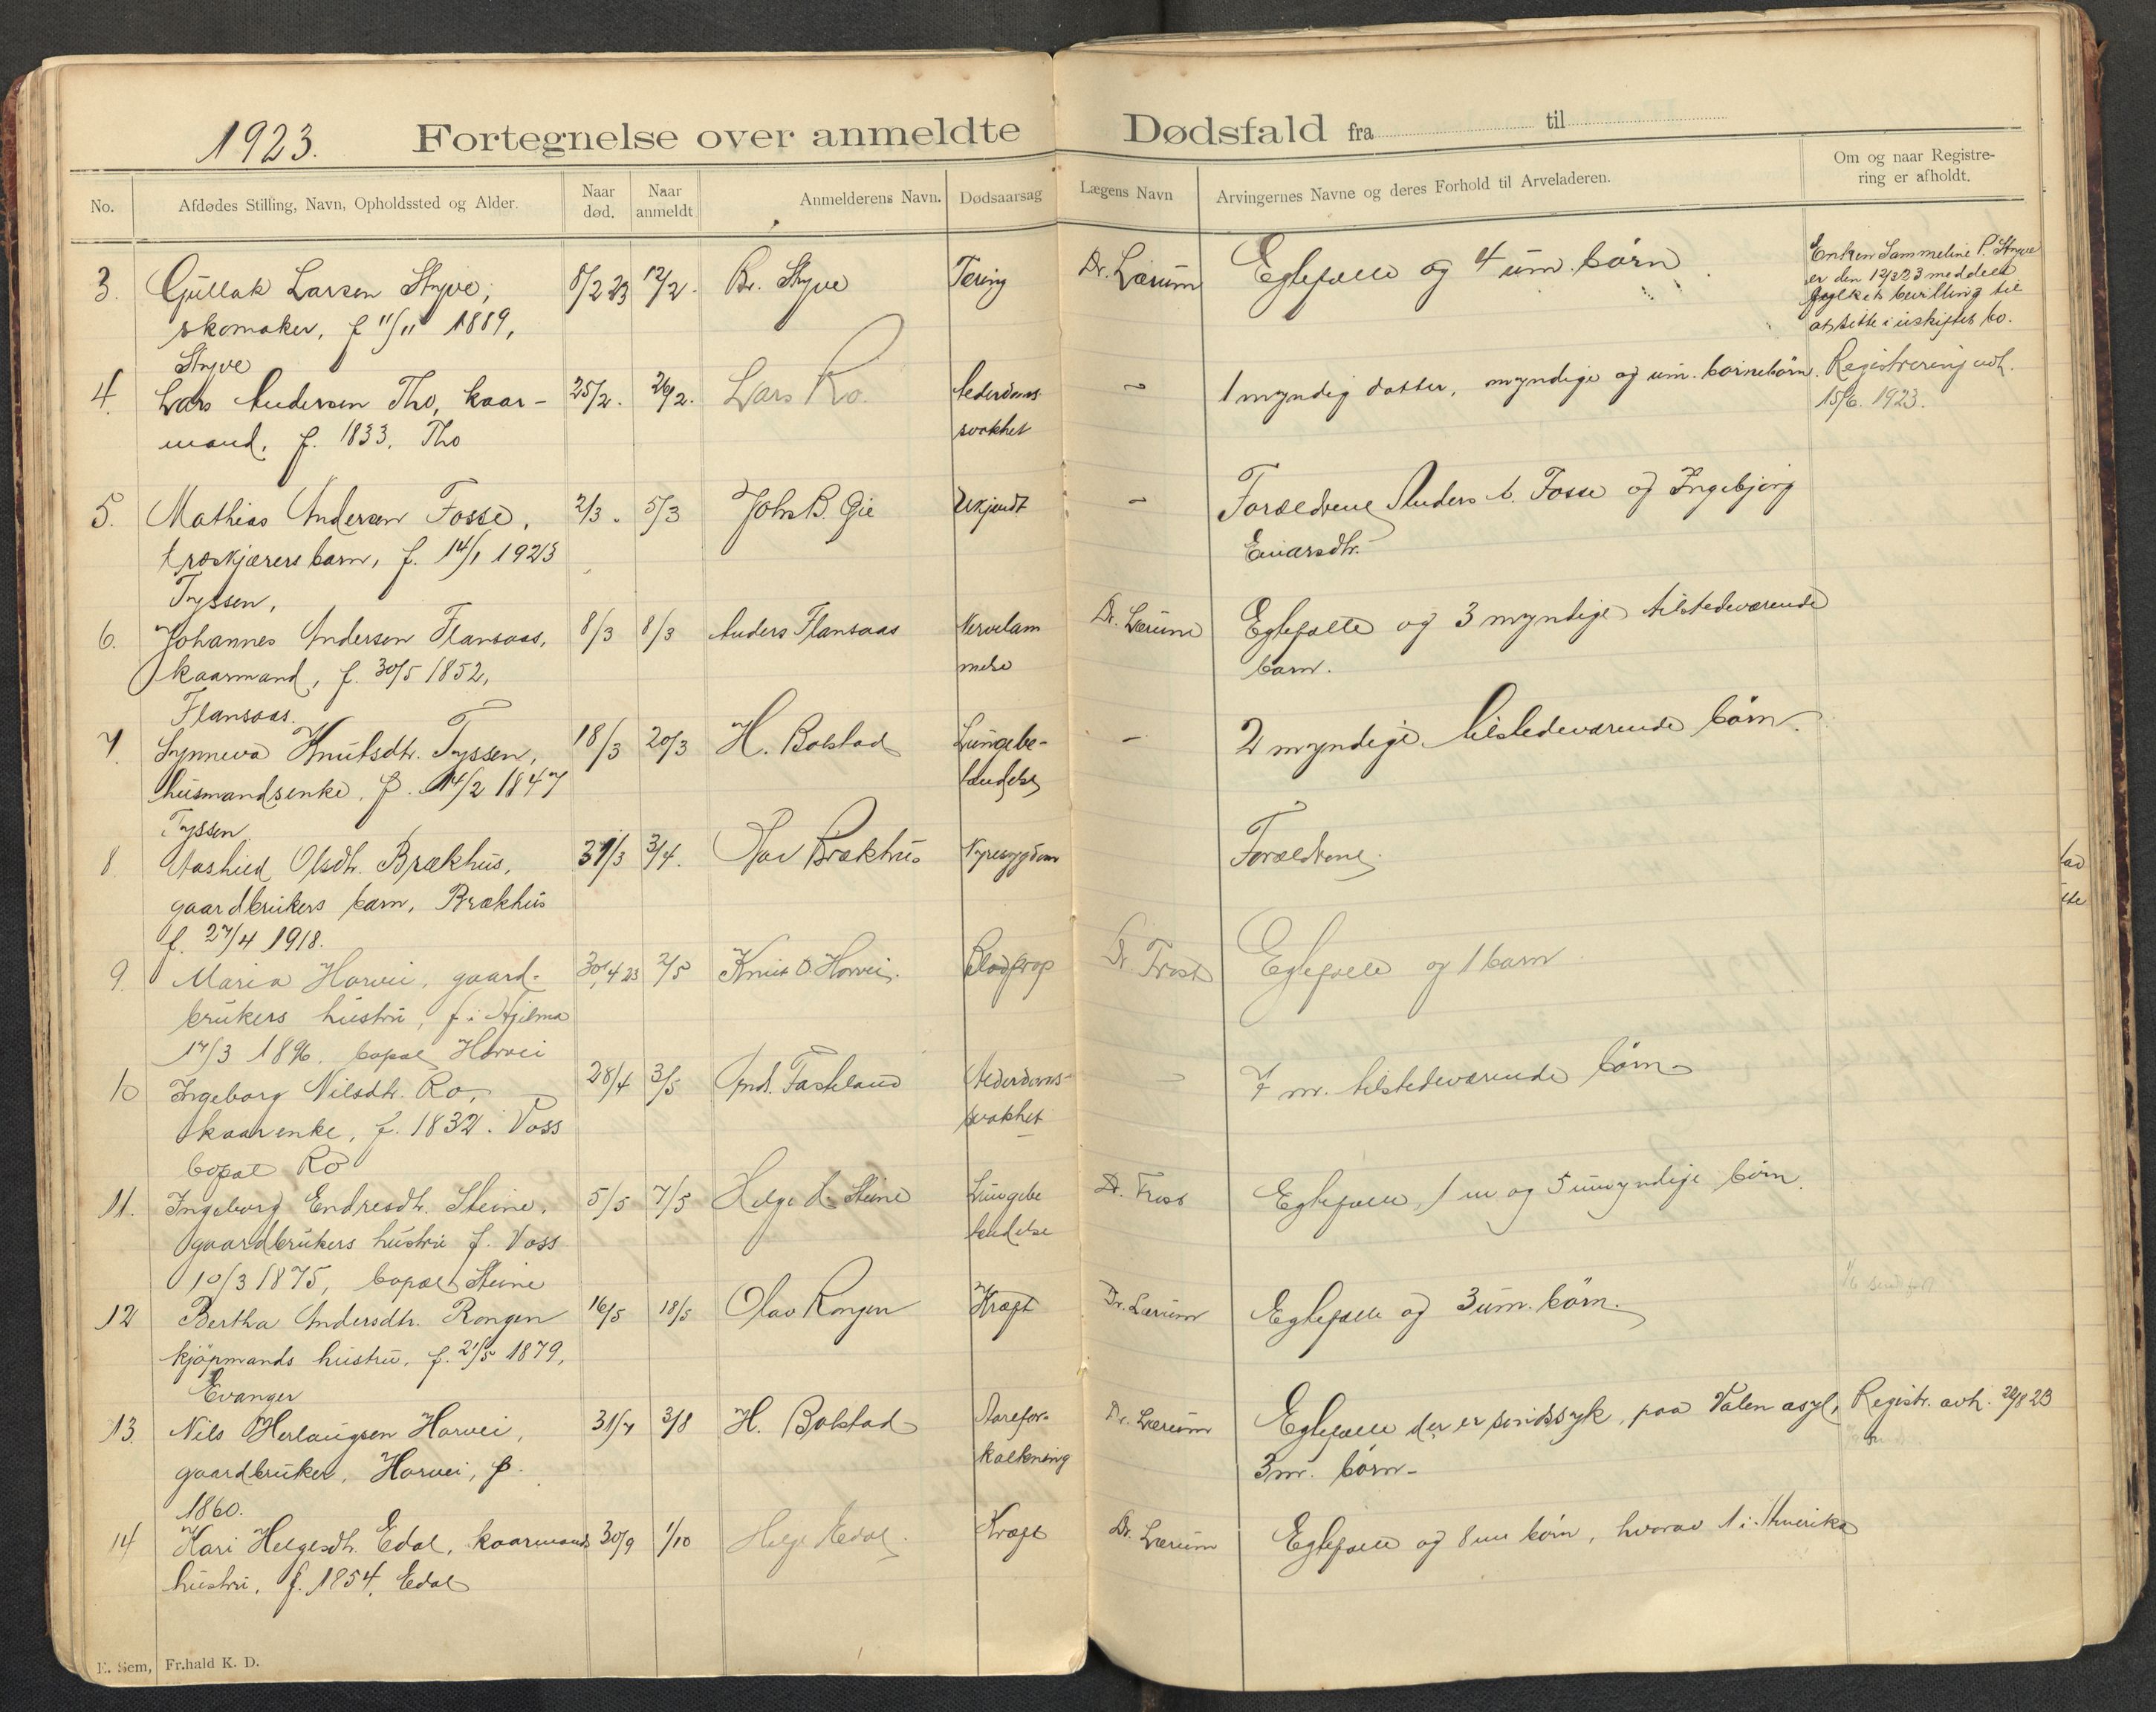 1923. Fortegnelse over anmeldte Dødsfald fra til
No. Afdødes Stilling, Navn, Opholdssted og Alder. Naar død. Naar anmeldt Anmelderens Navn. Dødsaarsag Lægens Navn Arvingernes Navne og deres Forhold til Arveladeren. Om og naar Registrering er afholdt.
3. Gullak Larsen Styve, 8/2 23 12/2. Br. Styve Tæring Dr. Lærum Egtefælle og 4 um. børn Enken Sammeline P. Styve
skomaker, f 11/11 1889, er den 12/3 23 meddelt
Styve fylkets bevilling til
at sitte i uskiftet bo.
4. Lars Andersen Tho, kaar- 25/2. 26/2. Lars Ro. Alderdoms- – 1 myndig datter, myndige og um. barnebørn. Registrering avh.
mand, f. 1833, Tho svakhet 15/6. 1923.
5. Mathias Andersen Fosse, 2/3. 5/3 John B. Gie Ukjendt – Forældrene Anders A. Fosse og Ingebjørg
træskjærers barn, f. 14/1 1923 Einarsdtr.
Tyssen,
6. Johannes Andersen Flansaas, 8/3 8/3 Anders Flansaas Nervelam Dr. Lærum Egtefælle og 3 myndige tilstedeværende
kaarmand, f. 30/5 1852, melse barn.
Flansaas.
7. Synneva Knutsdtr. Tyssen, 18/3 20/3 H. Bolstad Lungebe- – 2 myndige tilstedeværende børn.
husmandsenke, f. 14/2 1847 tændelse
Tyssen
8. Aashild Olsdtr. Brækhus, 31/3 3/4. Olav Brækhus Nyresygdom Forældrene.
gaardbrukers barn, Brækhus
f. 27/4 1918.
9. Maria Horvei, gaard- 30/4 23 2/5 Knut O. Horvei. Blodprop Dr. Frost Egtefælle og 1 barn
brukers hustru, f. i Hjelma
17/3 1896. bopæl Horvei
10 Ingeborg Nilsdtr. Ro, 28/4 3/5 And. Fadeland Alderdoms- – 7 m. tilstedeværende børn
kaarenke, f. 1832. Voss svakhet
bopæl Ro
11. Ingeborg Endresdtr. Steine, 5/5 7/5 Helge H. Steine Lungebe Dr. Frost Egtefælle, 1 m og 5 umyndige børn.
gaardbrukers hustru f. Voss tændelse
10/3 1875, bopæl Steine
12 Bertha Andersdtr. Rongen 16/5 18/5 Olav Rongen Kræft Dr. Lærum Egtefælle og 3 um. børn.
kjøpmands hustru, f. 21/5 1879,
Evanger
13. Nils Herlaugsen Horvei, 31/7 3/8 H. Bolstad Aarefor- Dr. Lærum Egtefælle der er sindssyk, paa Valen asyl, Registr. avh. 29/8 23
gaardbruker, Horvei, f. kalkning 3 m. børn-
1860.
14 Kari Helgesdtr. Edal, kaarmands 30/9 1/10 Helge Hedal. Kræft Dr. Lærum Egtefælle og 8 m børn, hvorav 1 i Amerika
hustru, f. 1854, Edal
E. Sem, Fr.hald K. D.